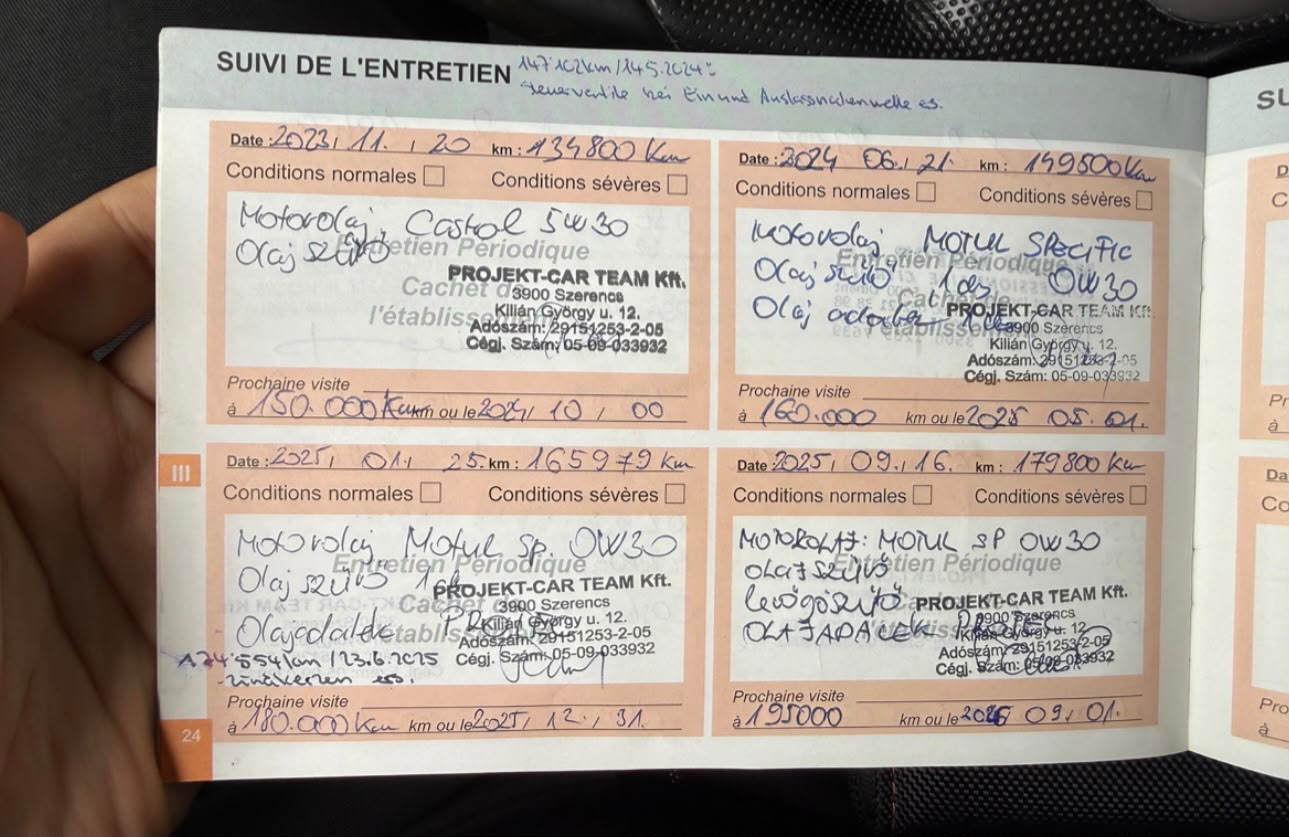 SUIVI DE L'ENTRETIEN
147'102km/14.5.2024:
Steuerventile bei Ein und Auslassnockenwelle es.
Date : 2023, 11. , 20 km : 134800 Km
Conditions normales Conditions sévères
Motorolaj, Castrol 5W30
Olaj szűrő
Entretien Périodique
Cachet de
l'établissement
PROJEKT-CAR TEAM Kft.
3900 Szerencs
Kilián György u. 12.
Adószám: 29151253-2-05
Cégj. Szám: 05-09-033932
Prochaine visite
à 150.000 Km km ou le 2024, 10, 00
Date : 2024 06., 21. km : 149500 Km
Conditions normales Conditions sévères
Motorolaj MOTUL SPECIFIC
Olaj szűrő 1 db 0W30
Olaj adalék
Entretien Périodique
Cachet de
l'établissement
PROJEKT-CAR TEAM Kft.
3900 Szerencs
Kilián György u. 12.
Adószám: 29151253-2-05
Cégj. Szám: 05-09-033932
Prochaine visite
à 160.000 km ou le 2025 05. 01.
III
Date : 2025, 01., 25. km : 165979 Km
Conditions normales Conditions sévères
Motorolaj Motul Sp. 0W30
Olaj szűrő
Olajadalék
Entretien Périodique
Cachet de
l'établissement
PROJEKT-CAR TEAM Kft.
3900 Szerencs
Kilián György u. 12.
Adószám: 29151253-2-05
Cégj. Szám: 05-09-033932
174'554km/23.6.2025
Zündkerzen es.
Prochaine visite
à 180.000 Km km ou le 2025, 12., 31.
Date : 2025, 09., 16. km : 179800 Km
Conditions normales Conditions sévères
MOTOROLAJ: MOTUL SP 0W30
OLAJSZŰRŐ
levegőszűrő
OLAJADALÉK
Entretien Périodique
PROJEKT-CAR TEAM Kft.
3900 Szerencs
Kilián György u. 12.
Adószám: 29151253-2-05
Cégj. Szám: 05-09-033932
Prochaine visite
à 195000 km ou le 2026 09, 01.
24